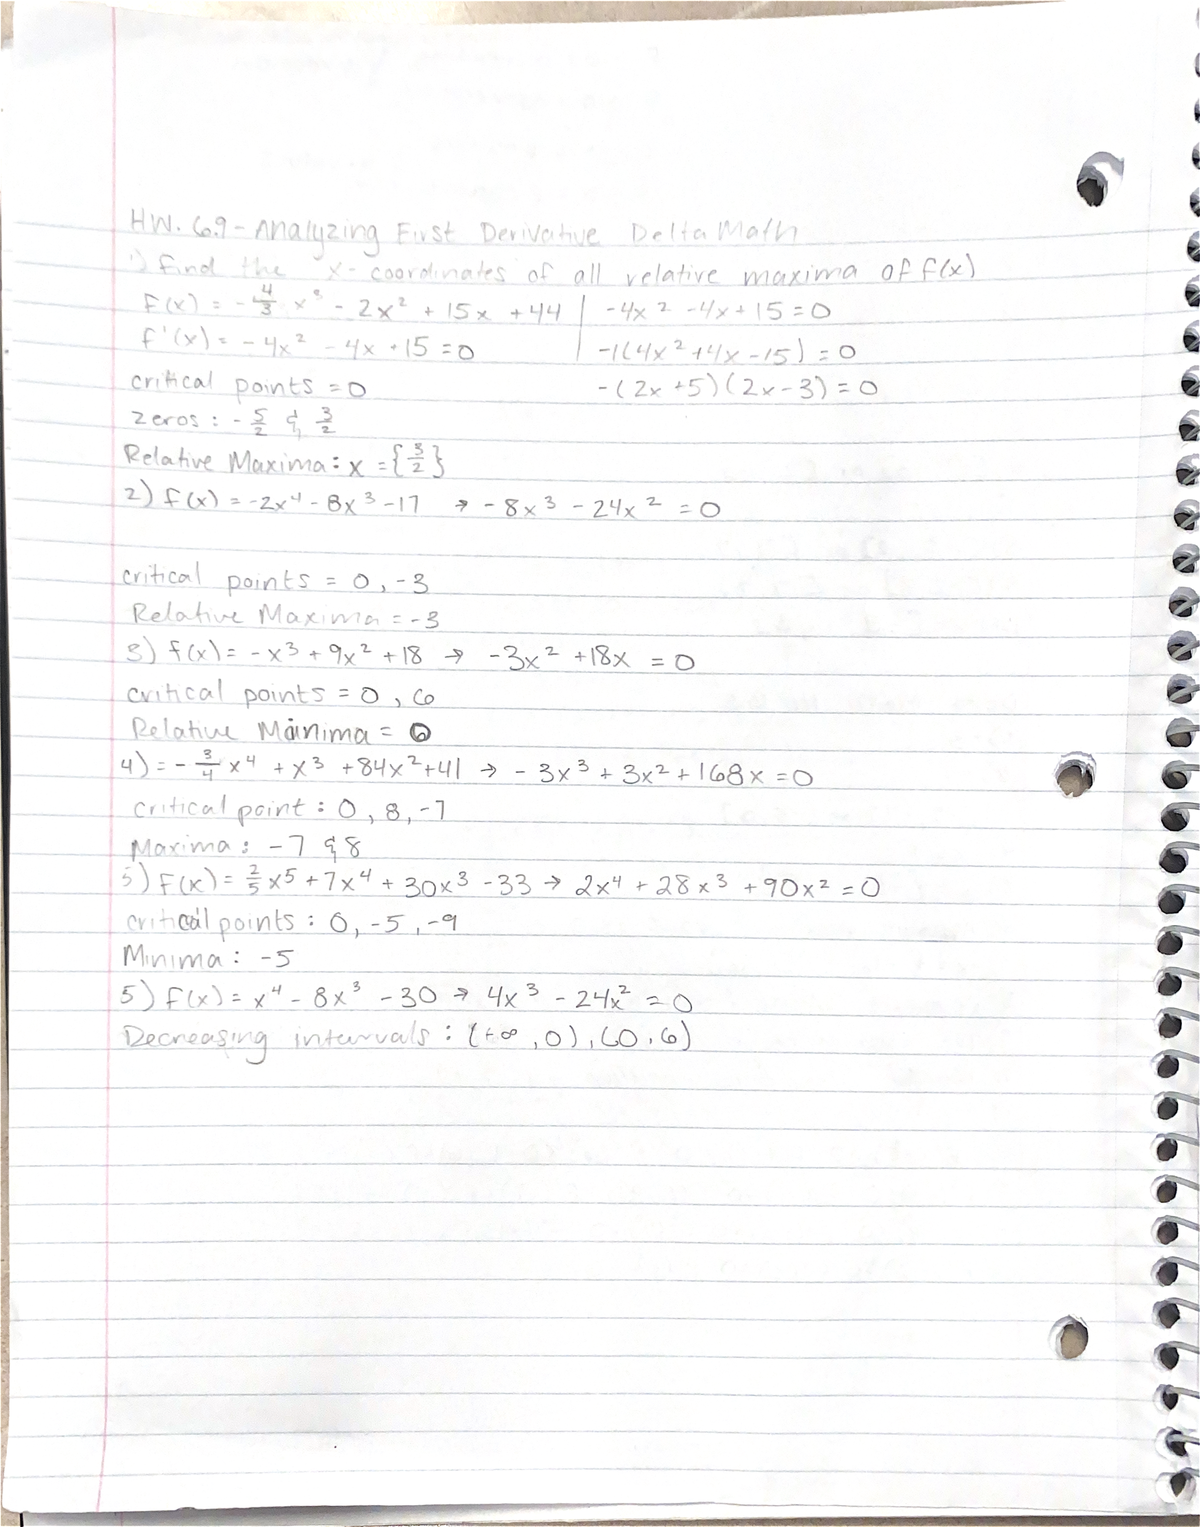 HW. 6.9 - Analyzing First Derivative Delta Math
1) Find the x-coordinates of all relative maxima of f(x)
f(x) = -4/3 x³ - 2x² + 15x + 44 | -4x² - 4x + 15 = 0
f'(x) = -4x² - 4x + 15 = 0 | -1(4x² + 4x - 15) = 0
critical points = 0 -(2x + 5)(2x - 3) = 0
zeros : -5/2 & 3/2
Relative Maxima: x = {3/2}
2) f(x) = -2x⁴ - 8x³ - 17 → -8x³ - 24x² = 0
critical points = 0, -3
Relative Maxima = -3
3) f(x) = -x³ + 9x² + 18 → -3x² + 18x = 0
critical points = 0, 6
Relative Minima =
4) = -3/4 x⁴ + x³ + 84x² + 41 → -3x³ + 3x² + 168x = 0
critical point : 0, 8, -7
Maxima : -7 & 8
5) F(x) = 2/5 x⁵ + 7x⁴ + 30x³ - 33 → 2x⁴ + 28x³ + 90x² = 0
critical points : 0, -5, -9
Minima : -5
5) f(x) = x⁴ - 8x³ - 30 → 4x³ - 24x² = 0
Decreasing intervals : (-∞, 0), (0, 6)